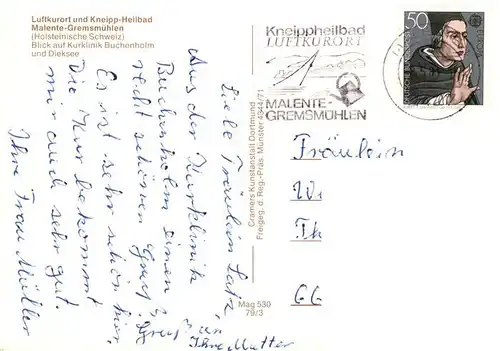 Luftkurort und Kneipp-Heilbad
Malente-Gremsmühlen
(Holsteinische Schweiz)
Blick auf Kurklinik Buchenholm
und Dieksee
Kneippheilbad
LUFTKURORT
MALENTE-
GREMSMÜHLEN
50
DEUTSCHE BUNDESPOST
Liebe Fräulein
Aus der Kurklinik
Buchenholm einen
recht schönen Gruß
Es ist sehr schön hier.
Die Kur bekommt
mir auch sehr gut.
Ihre Frau Müller
Gruß an
Ihre Mutter
Cramers Kunstanstalt Dortmund
Freigeg. d. Reg.-Präs. Münster 4944/71
Mag 530
79/3
Fräulein
W
Th